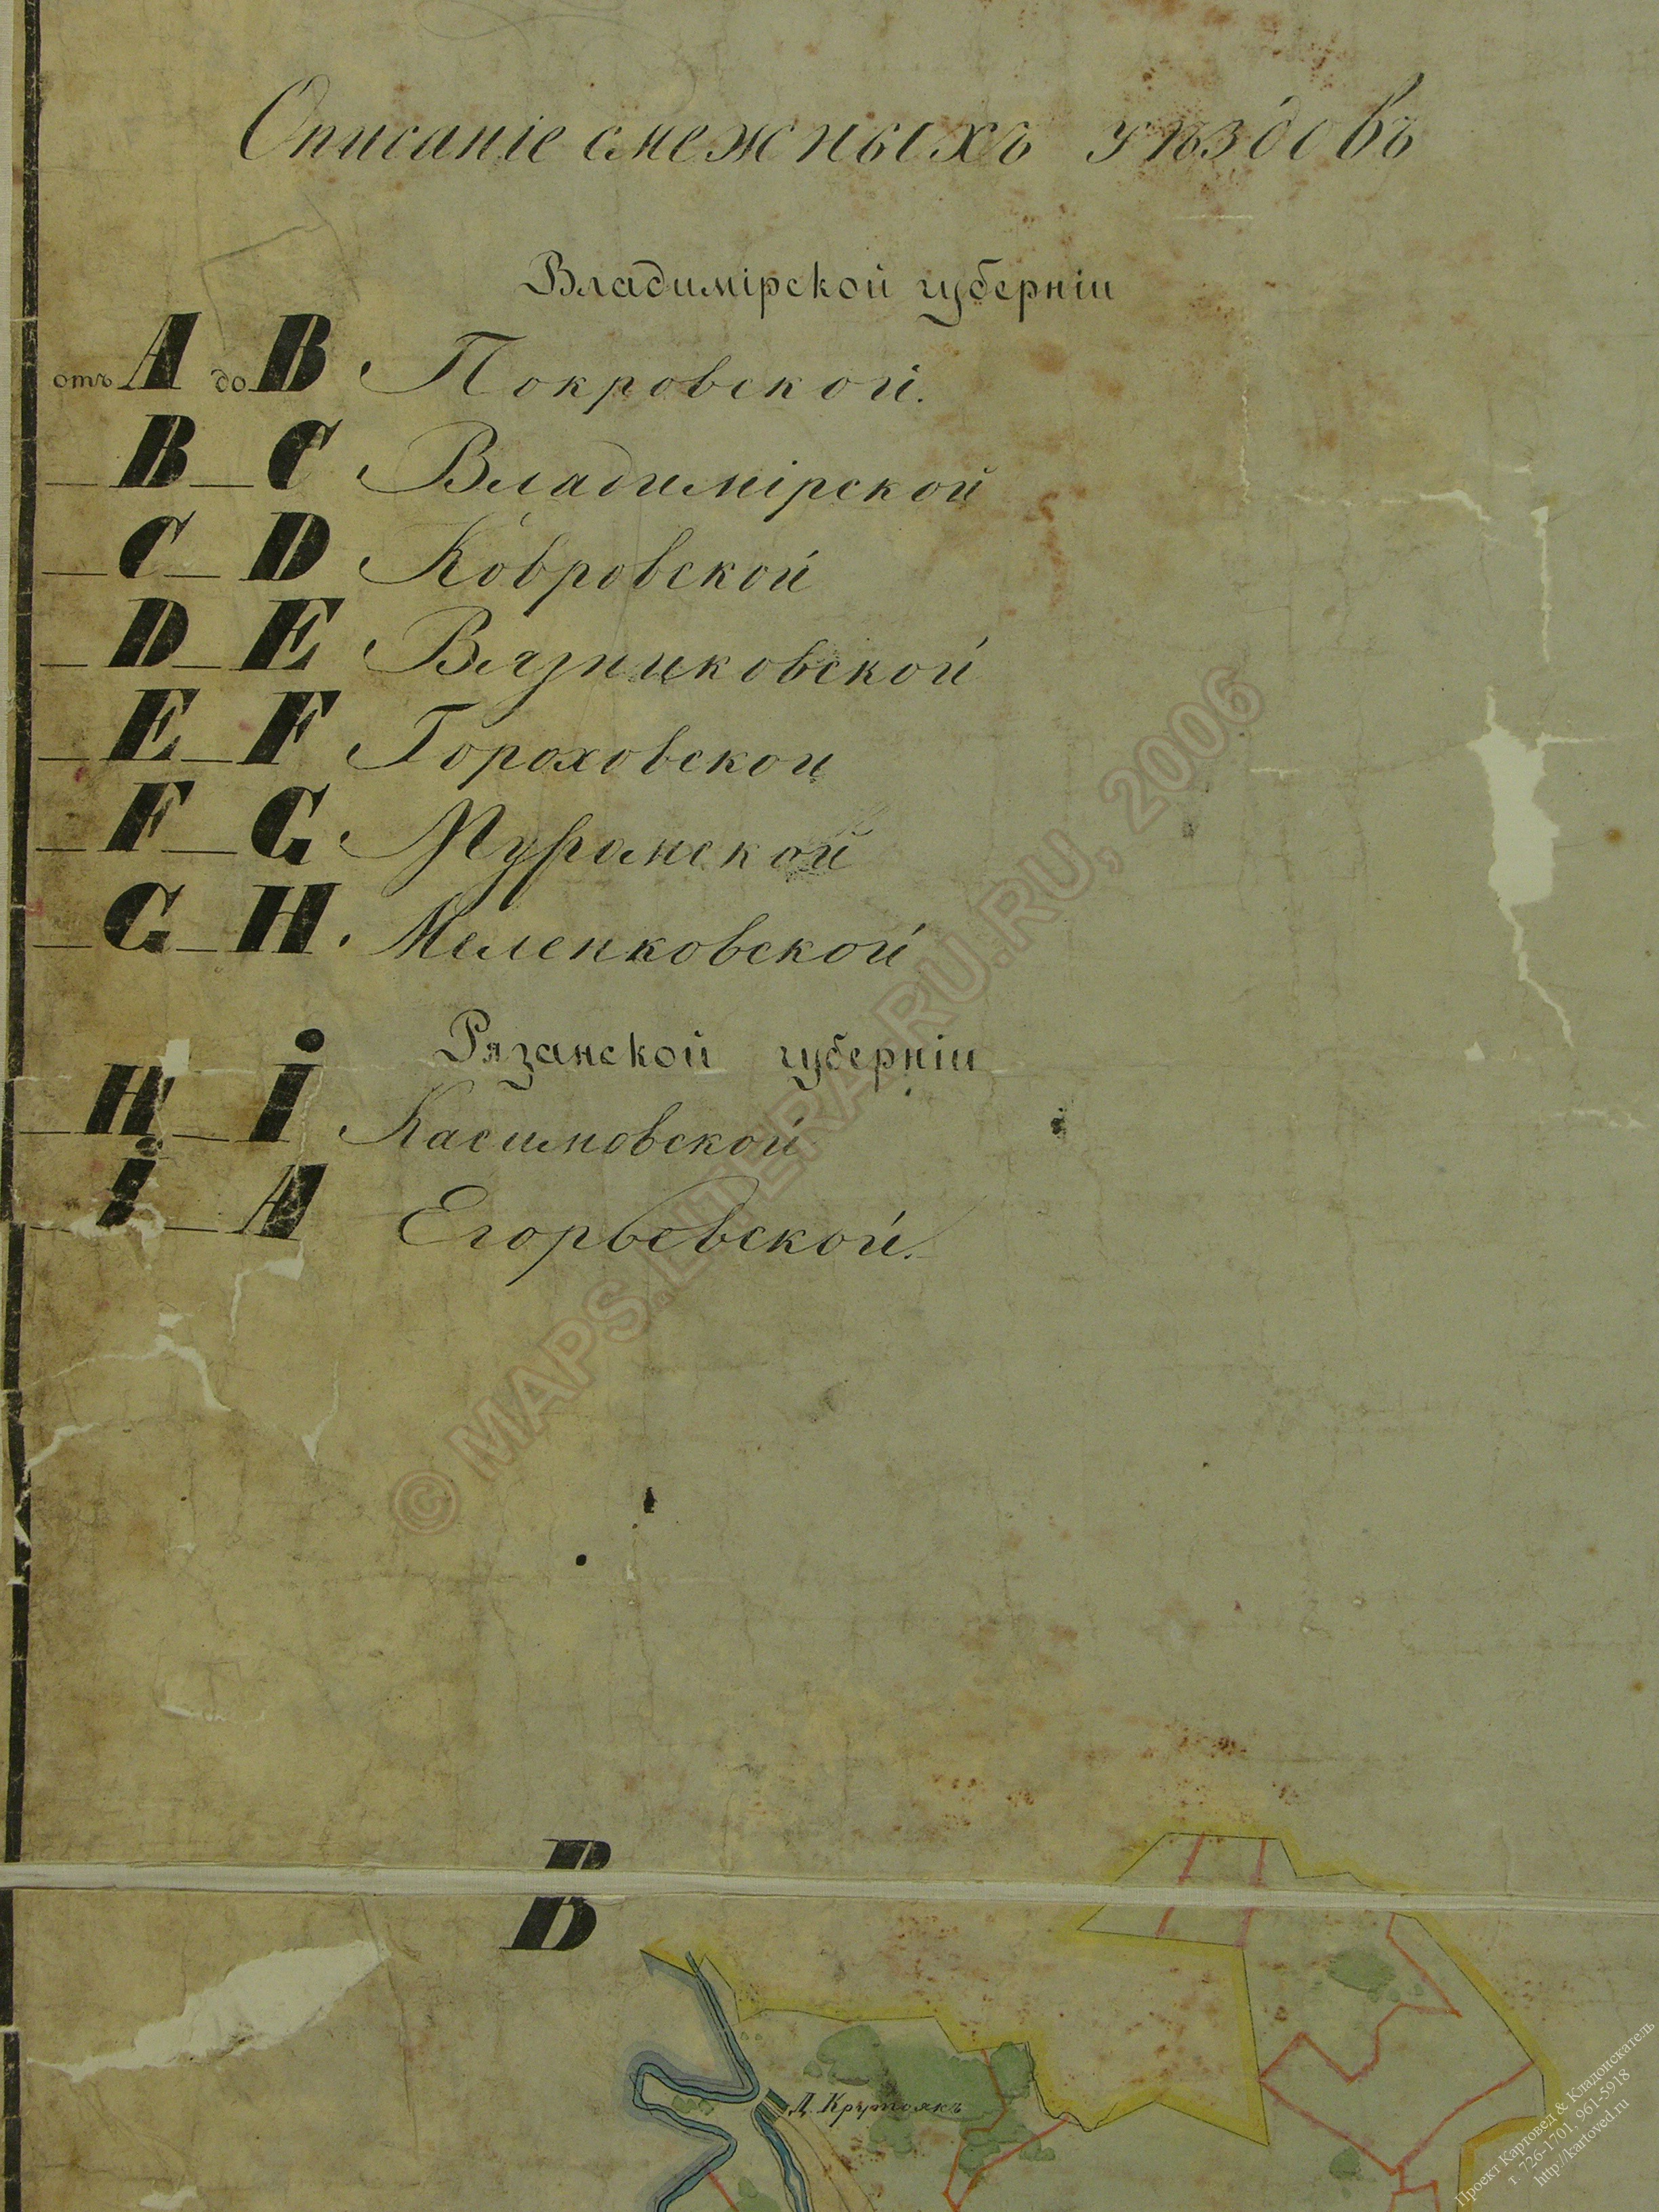 Описаніе смежныхъ уѣздовъ
Владимірской губерніи
отъ A до B Покровской.
— B — C Владимірской
— C — D Ковровской
— D — E Вязниковской
— E — F Гороховской
— F — G Муромской
— G — H. Меленковской
Рязанской губерніи
— H — i Касимовской
— i — A Егорьевской.
B
Д. Крутоякъ
© MAPS.LITERA-RU.RU, 2006
Проект Картовед & Кладоискатель
т. 726-1701, 961-5918
http://kartoved.ru